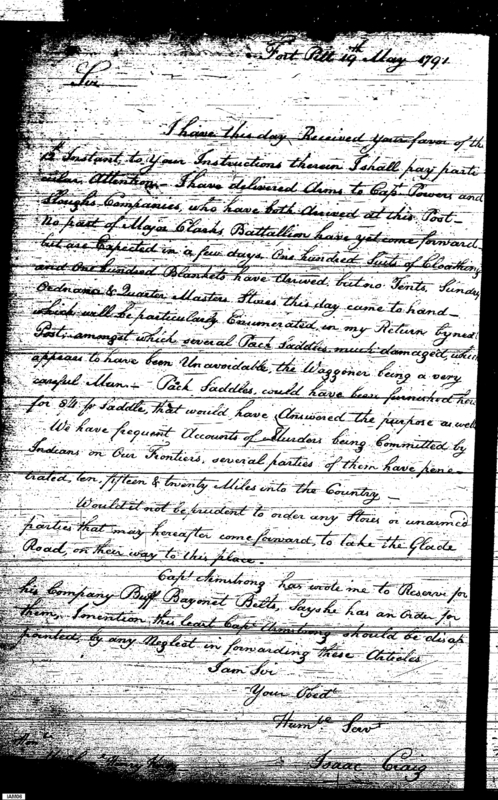 Fort Pitt 19th May 1791
Sir
I have this day Received your favor of the
12th Instant, to Your Instructions therein I shall pay parti
cular Attention — I have delivered Arms to Capt Powers and
Sloughs Companies, who have both Arrived at this Post —
no part of Major Clarks Battallion have yet come forward
but are Expected in a few days. One hundred Suits of Cloathing
and One hundred Blankets have Arrived, but no Tents, Sundry
Ordnance & Quarter Masters Stores this day came to hand —
which will be particularly Enumerated in my Return by next
Post, amongst which several Pack Saddles, much damaged, which
appears to have been Unavoidable, the Waggoner being a very
careful Man — Pack Saddles, could have been furnished here
for 8/4 pr Saddle, that would have Answered the purpose as well
We have frequent Accounts of Murders being Committed by
Indians on Our Frontiers, several parties of them have pene-
trated, ten, fifteen & twenty Miles into the Country —
Would it not be prudent to order any Stores or unarmed
parties that may hereafter come forward, to take the Glade
Road, on their way to this place.
Capt Armstrong has wrote me to Reserve for
his Company Buff Bayonet Belts, Says he has an Order for
them, I mention this least Capt Armstrong should be disap
pointed, by any Neglect in forwarding these Articles
I am Sir
Your Obedt
Humble Servt
Isaac Craig
1AM66